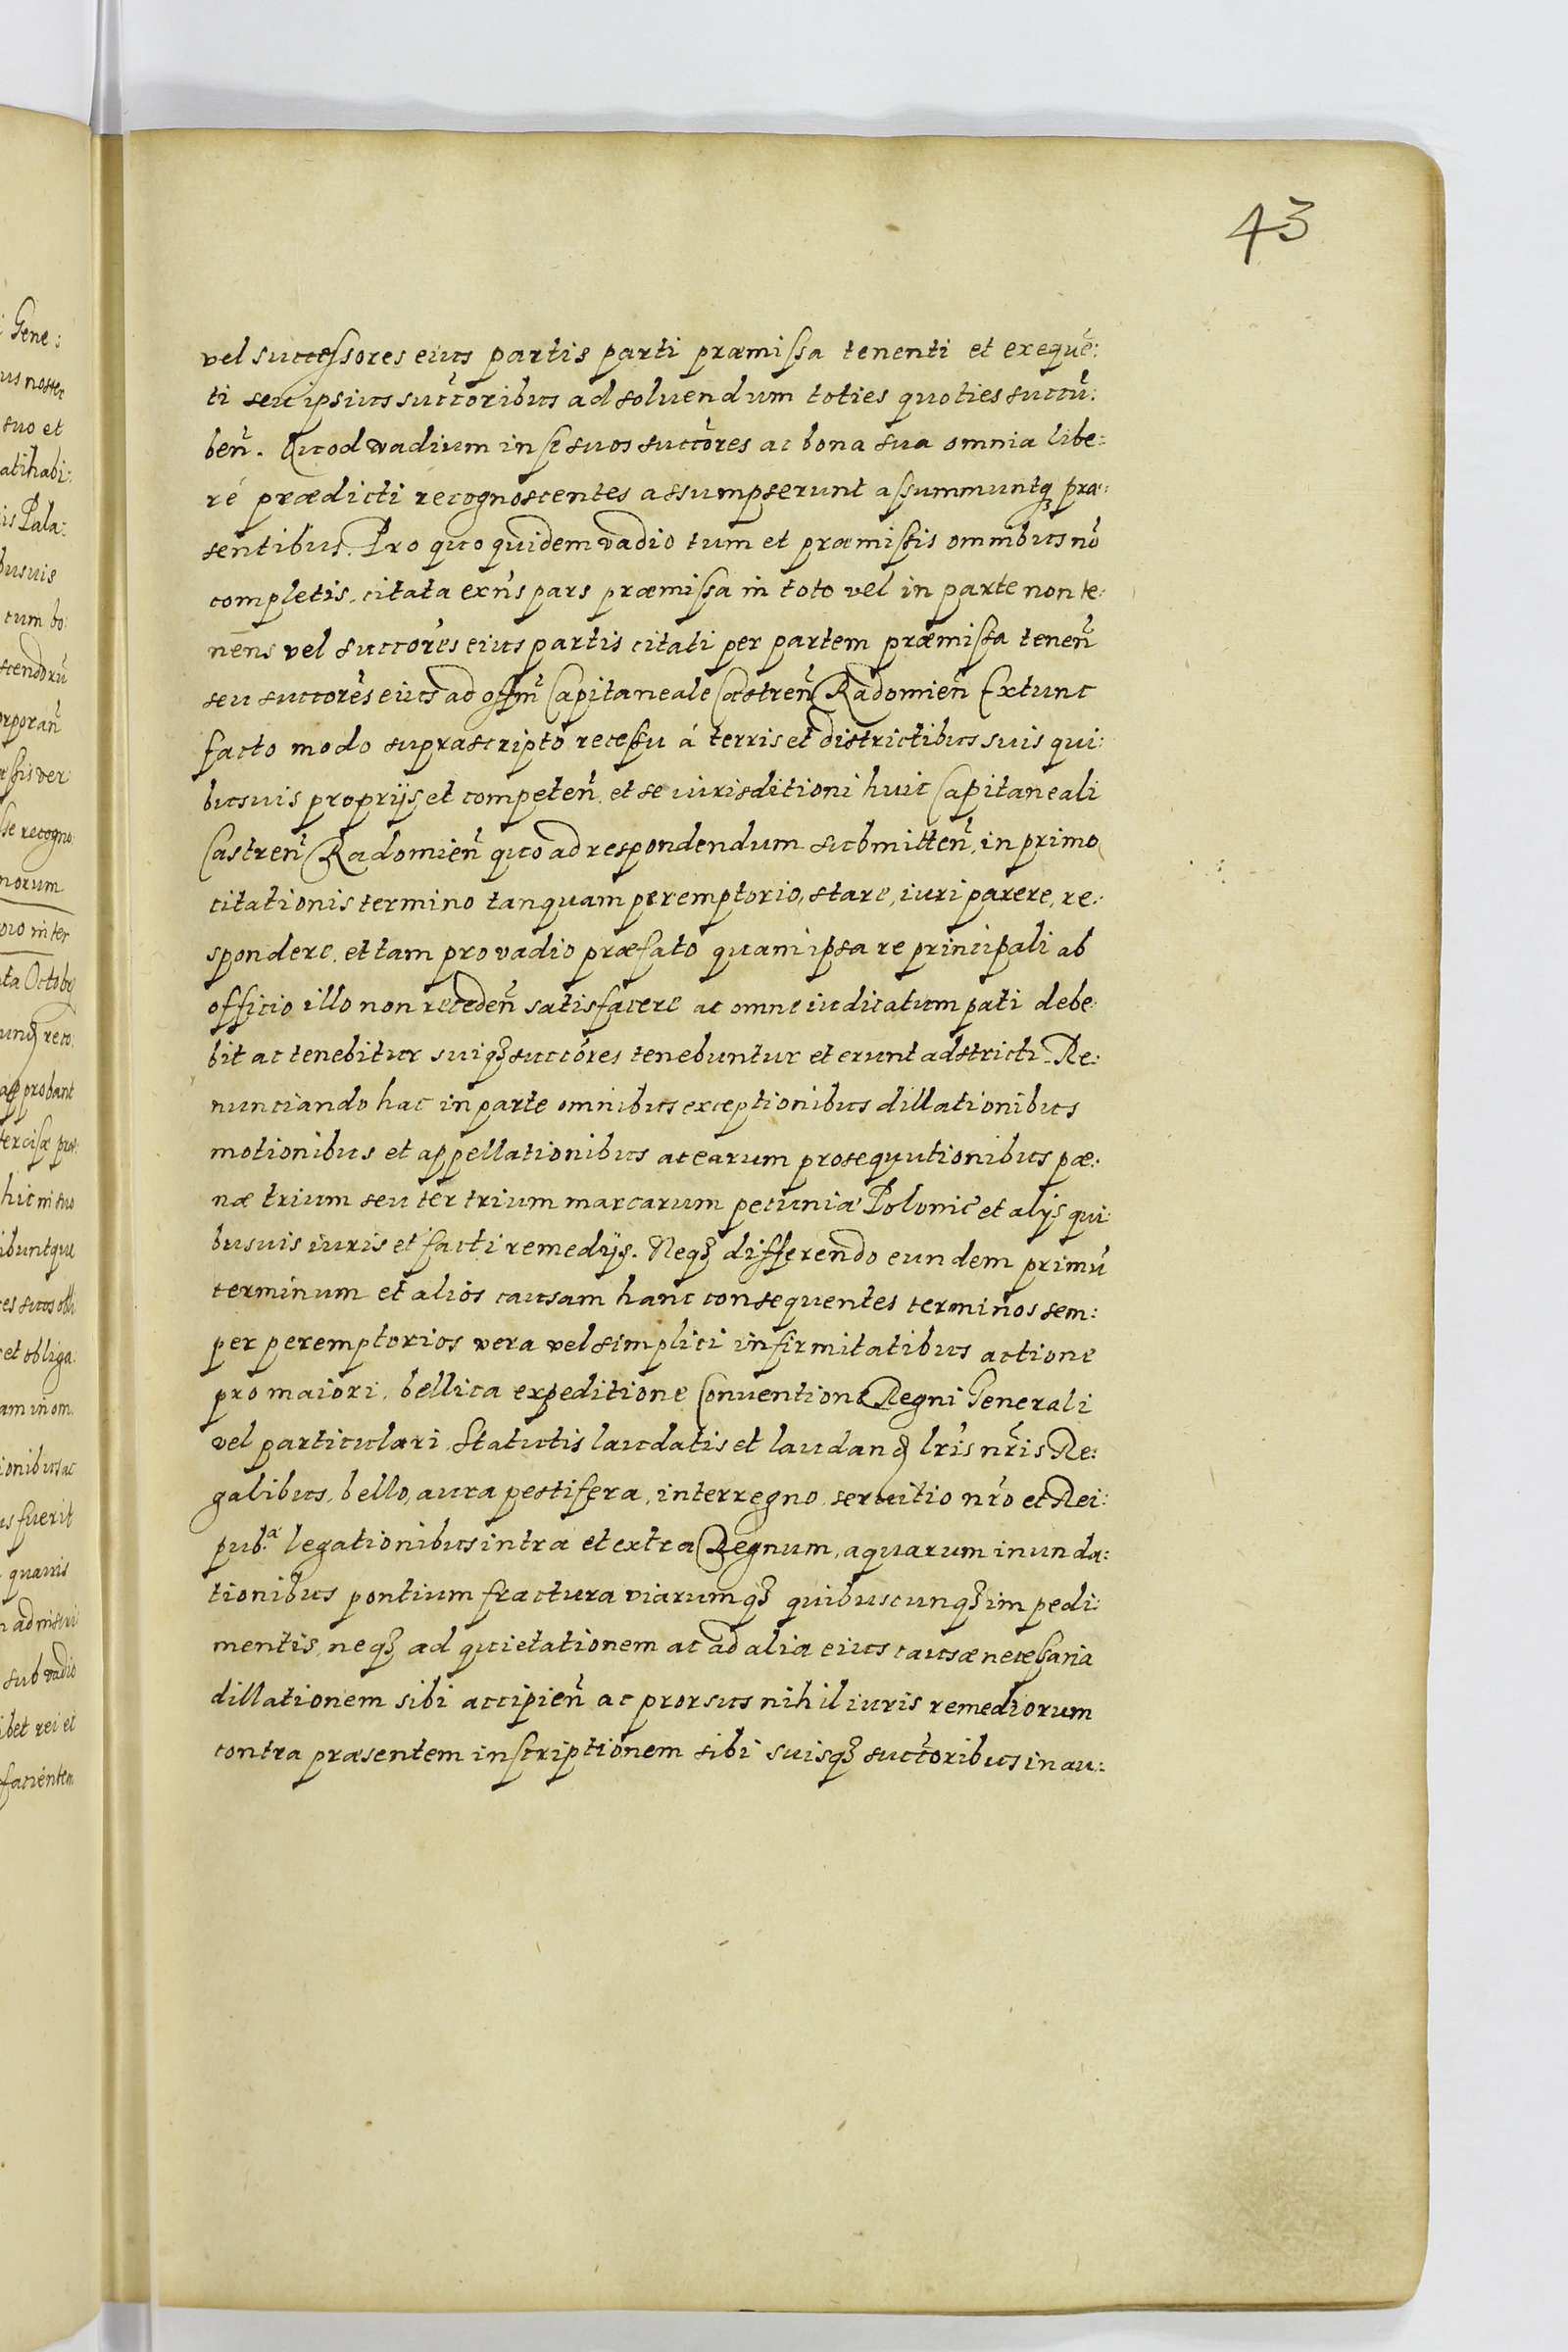 43
vel successores eius partis parti præmissa tenenti et exequē:
ti seu ipsius succ̃oribus ad soluendum toties quoties succū:
beñ. Quod vadium in se suos succ̃ores ac bona sua omnia libe:
ré prædicti recognoscentes assumpserunt assummuntq₃ præ:
sentibus. Pro quo quidem vadio tum et præmissis omnibus nõ
completis, citata exñs pars præmissa in toto vel in parte non te:
nens vel succores eius partis citati per partem præmissa teneñ
seu succores eius ad offm̃ Capitaneale Castreñ Radomieñ Extunc
facto modo suprascripto recessu á terris et districtibus suis qui:
busuis proprijs et competeñ. et se iurisditioni huic Capitaneali
Castreñ Radomieñ quo ad respondendum submitteñ, in primo
citationis termino tanquam peremptorio, stare, iuri parere, re:
spondere, et tam pro vadio præfato quam ipsa re principali ab
officio illo non recedeñ satisfacere ac omne iudicatum pati debe:
bit ac tenebitur suiq₃ succores tenebuntur et erunt adstricti. Re:
nunciando hac in parte omnibus exceptionibus dillationibus
motionibus et appellationibus ac earum prosequutionibus pæ:
næ trium seu ter trium marcarum pecuniæ Polonic̃ et alijs qui:
busuis iuris et facti remedijs. Neq₃ differendo eundem primū
terminum et alios causam hanc consequentes terminos sem:
per peremptorios vera vel simplici infirmitatibus actione
pro maiori, bellica expeditione Conventione Regni Generali
vel particulari Statutis laudatis et laudanđ lr̃is nr̃is Re:
galibus, bello, aura pestifera, interregno, seruitio nr̃o et Rei:
pub.ᵃ legationibus intra et extra Regnum, aquarum inunda:
tionibus pontium fractura viarumq₃ quibuscunq₃ impedi:
mentis, neq₃ ad quietationem ac ad alia eius causæ necessaria
dillationem sibi accipieñ ac prorsus nihil iuris remediorum
contra præsentem inscriptionem sibi suisq₃ succ̃oribus in au:
Gene:
us noster
suo et
atihabi:
is Pala:
busuis
cum bo:
orporañ
se recogno:
norum
inter
ta Octobr
reco:
approbant
hic in
ibuntque
et obliga:
am in om:
ionibus ac
us fuerit
quamis
sub vadio
ibet rei et
facientem